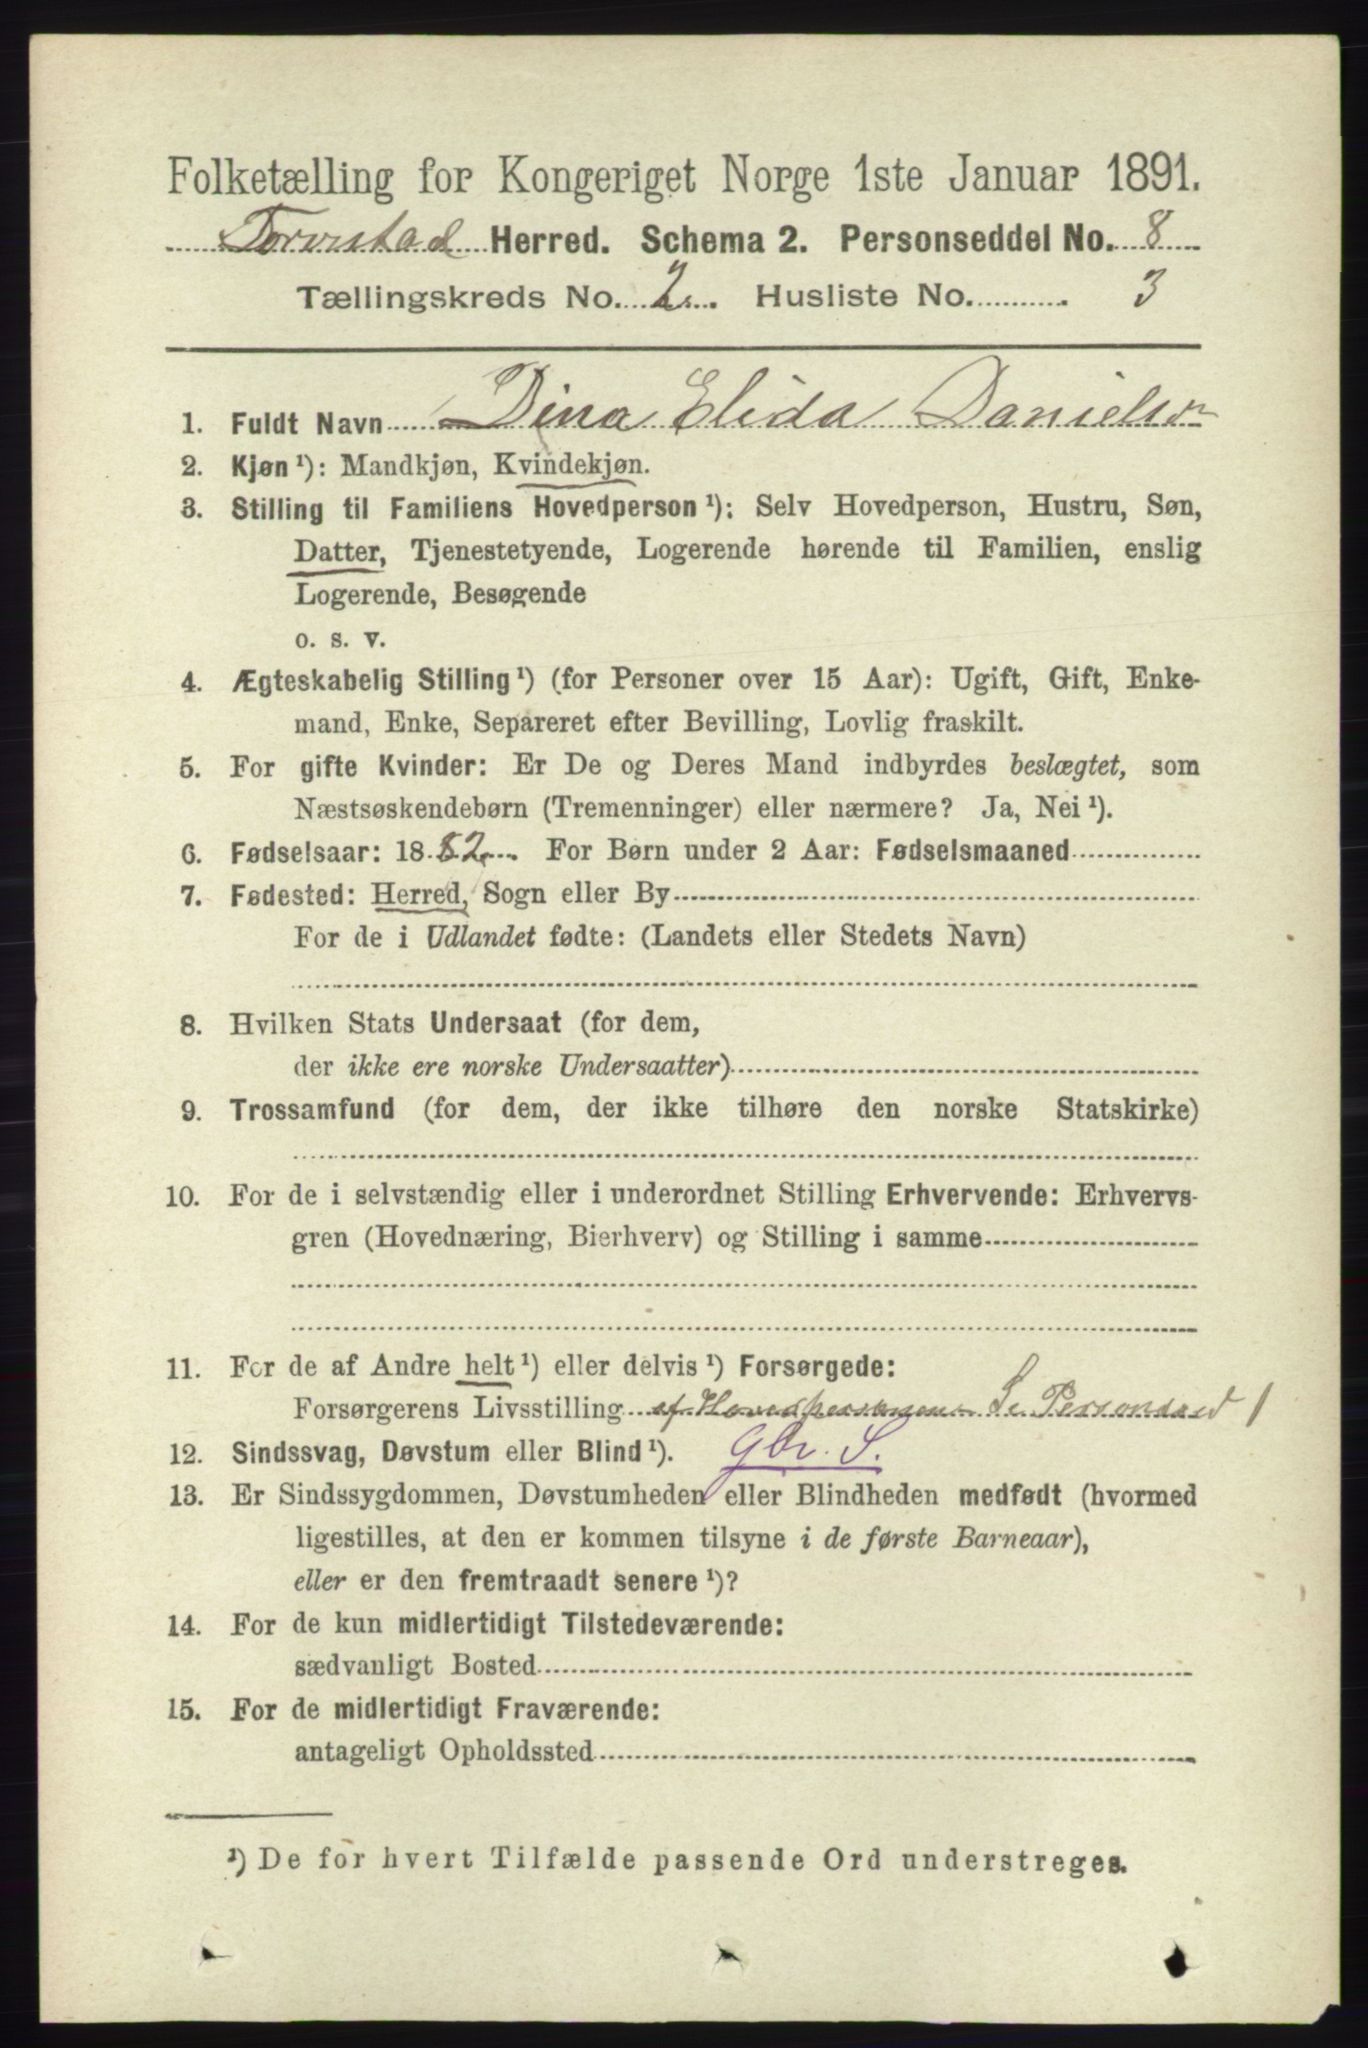 Folketælling for Kongeriget Norge 1ste Januar 1891.
Torvestad Herred. Schema 2. Personseddel No. 8
Tællingskreds No. 2. Husliste No. 3
1. Fuldt Navn Dina Elida Danielsn
2. Kjøn ¹): Mandkjøn, Kvindekjøn.
3. Stilling til Familiens Hovedperson ¹): Selv Hovedperson, Hustru, Søn,
Datter, Tjenestetyende, Logerende hørende til Familien, enslig
Logerende, Besøgende
o. s. v.
4. Ægteskabelig Stilling ¹) (for Personer over 15 Aar): Ugift, Gift, Enke-
mand, Enke, Separeret efter Bevilling, Lovlig fraskilt.
5. For gifte Kvinder: Er De og Deres Mand indbyrdes beslægtet, som
Næstsøskendebørn (Tremenninger) eller nærmere? Ja, Nei ¹).
6. Fødselsaar: 1882. For Børn under 2 Aar: Fødselsmaaned
7. Fødested: Herred, Sogn eller By
For de i Udlandet fødte: (Landets eller Stedets Navn)
8. Hvilken Stats Undersaat (for dem,
der ikke ere norske Undersaatter)
9. Trossamfund (for dem, der ikke tilhøre den norske Statskirke)
10. For de i selvstændig eller i underordnet Stilling Erhvervende: Erhvervs-
gren (Hovednæring, Bierhverv) og Stilling i samme
11. For de af Andre helt ¹) eller delvis ¹) Forsørgede:
Forsørgerens Livsstilling af Hovedpersonen Se Personsed 1
12. Sindssvag, Døvstum eller Blind ¹). Gbr. S.
13. Er Sindssygdommen, Døvstumheden eller Blindheden medfødt (hvormed
ligestilles, at den er kommen tilsyne i de første Barneaar),
eller er den fremtraadt senere ¹)?
14. For de kun midlertidigt Tilstedeværende:
sædvanligt Bosted
15. For de midlertidigt Fraværende:
antageligt Opholdssted
¹) De for hvert Tilfælde passende Ord understreges.